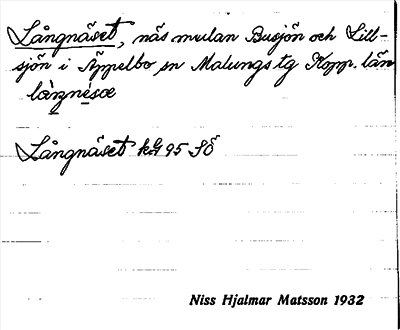 Långnäset, näs mulan Busjön och Lill-
sjön i Äppelbo sn Malungs tg Kopp. län
Långnäset kG 95 SÖ
Niss Hjalmar Matsson 1932